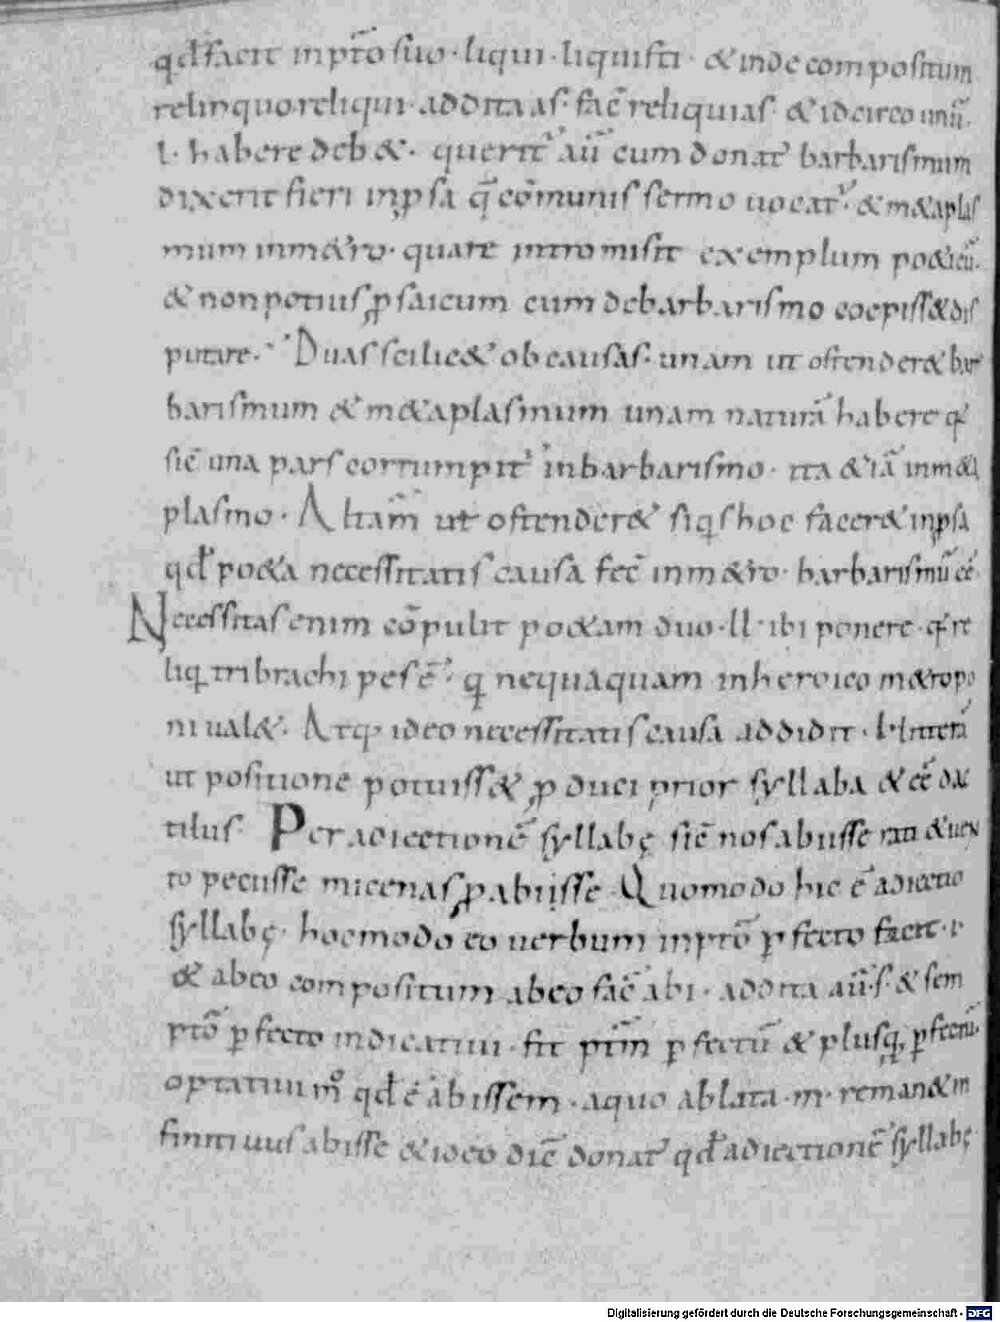 qđ facit inp̄to suo · liqui · liquisti · & inde compositum
relinquo reliqui · addita as · fac̄ reliquias · & idcirco unū ·
l · habere deb& · querit᷑ aū cum donat᷑ barbarismum
dixerit fieri in ꝓsa q̄ cōmunis sermo uocat᷑ · & m&aplas
mum in m&ro · quare intromisit exemplum po&icū ·
& non potius ꝓsaicum cum de barbarismo coepiss& dis
putare · Duas scilic& ob causas · unam ut ostender& bar
barismum & m&aplasmum unam naturā habere q᷑
sic̄ una pars corrumpit᷑ in barbarismo · ita & iā in m&a
plasmo · Aliam ut ostender& siqs hoc facer& in ꝓsa
qđ po&a necessitatis causa fec̄ in m&ro · barbarismū ēē ·
Necessitas enim cōpulit po&am duo · ll · ibi ponere · q᷑ re
liq tribrachi pes ē · q nequaquam in heroico m&ro po
ni ual& · Atq · ideo necessitatis causa addidit · l · litterā
ut positione potuiss& ꝓduci prior syllaba & ēē dac
tilus · Per adiectionē syllabę sic̄ nos abisse rati & uen
to petisse micenas ꝓ abisse · Quomodo hic ē adiectio
syllabę · hoc modo eo uerbum in p̄to ꝑfecto facit · i ·
& ab eo compositum abeo fac̄ abi · addita aū · s · & sem
p̄to ꝑfecto indicatiui · fit p̄tm̄ ꝑfectū & plusq ꝑfectū ·
optatiui m̊ qđ ē abissem · a quo ablata · m · reman& in
finitiuus abisse & ideo dic̄ donat᷑ qđ adiectionē syllabę
Digitalisierung gefördert durch die Deutsche Forschungsgemeinschaft - DFG